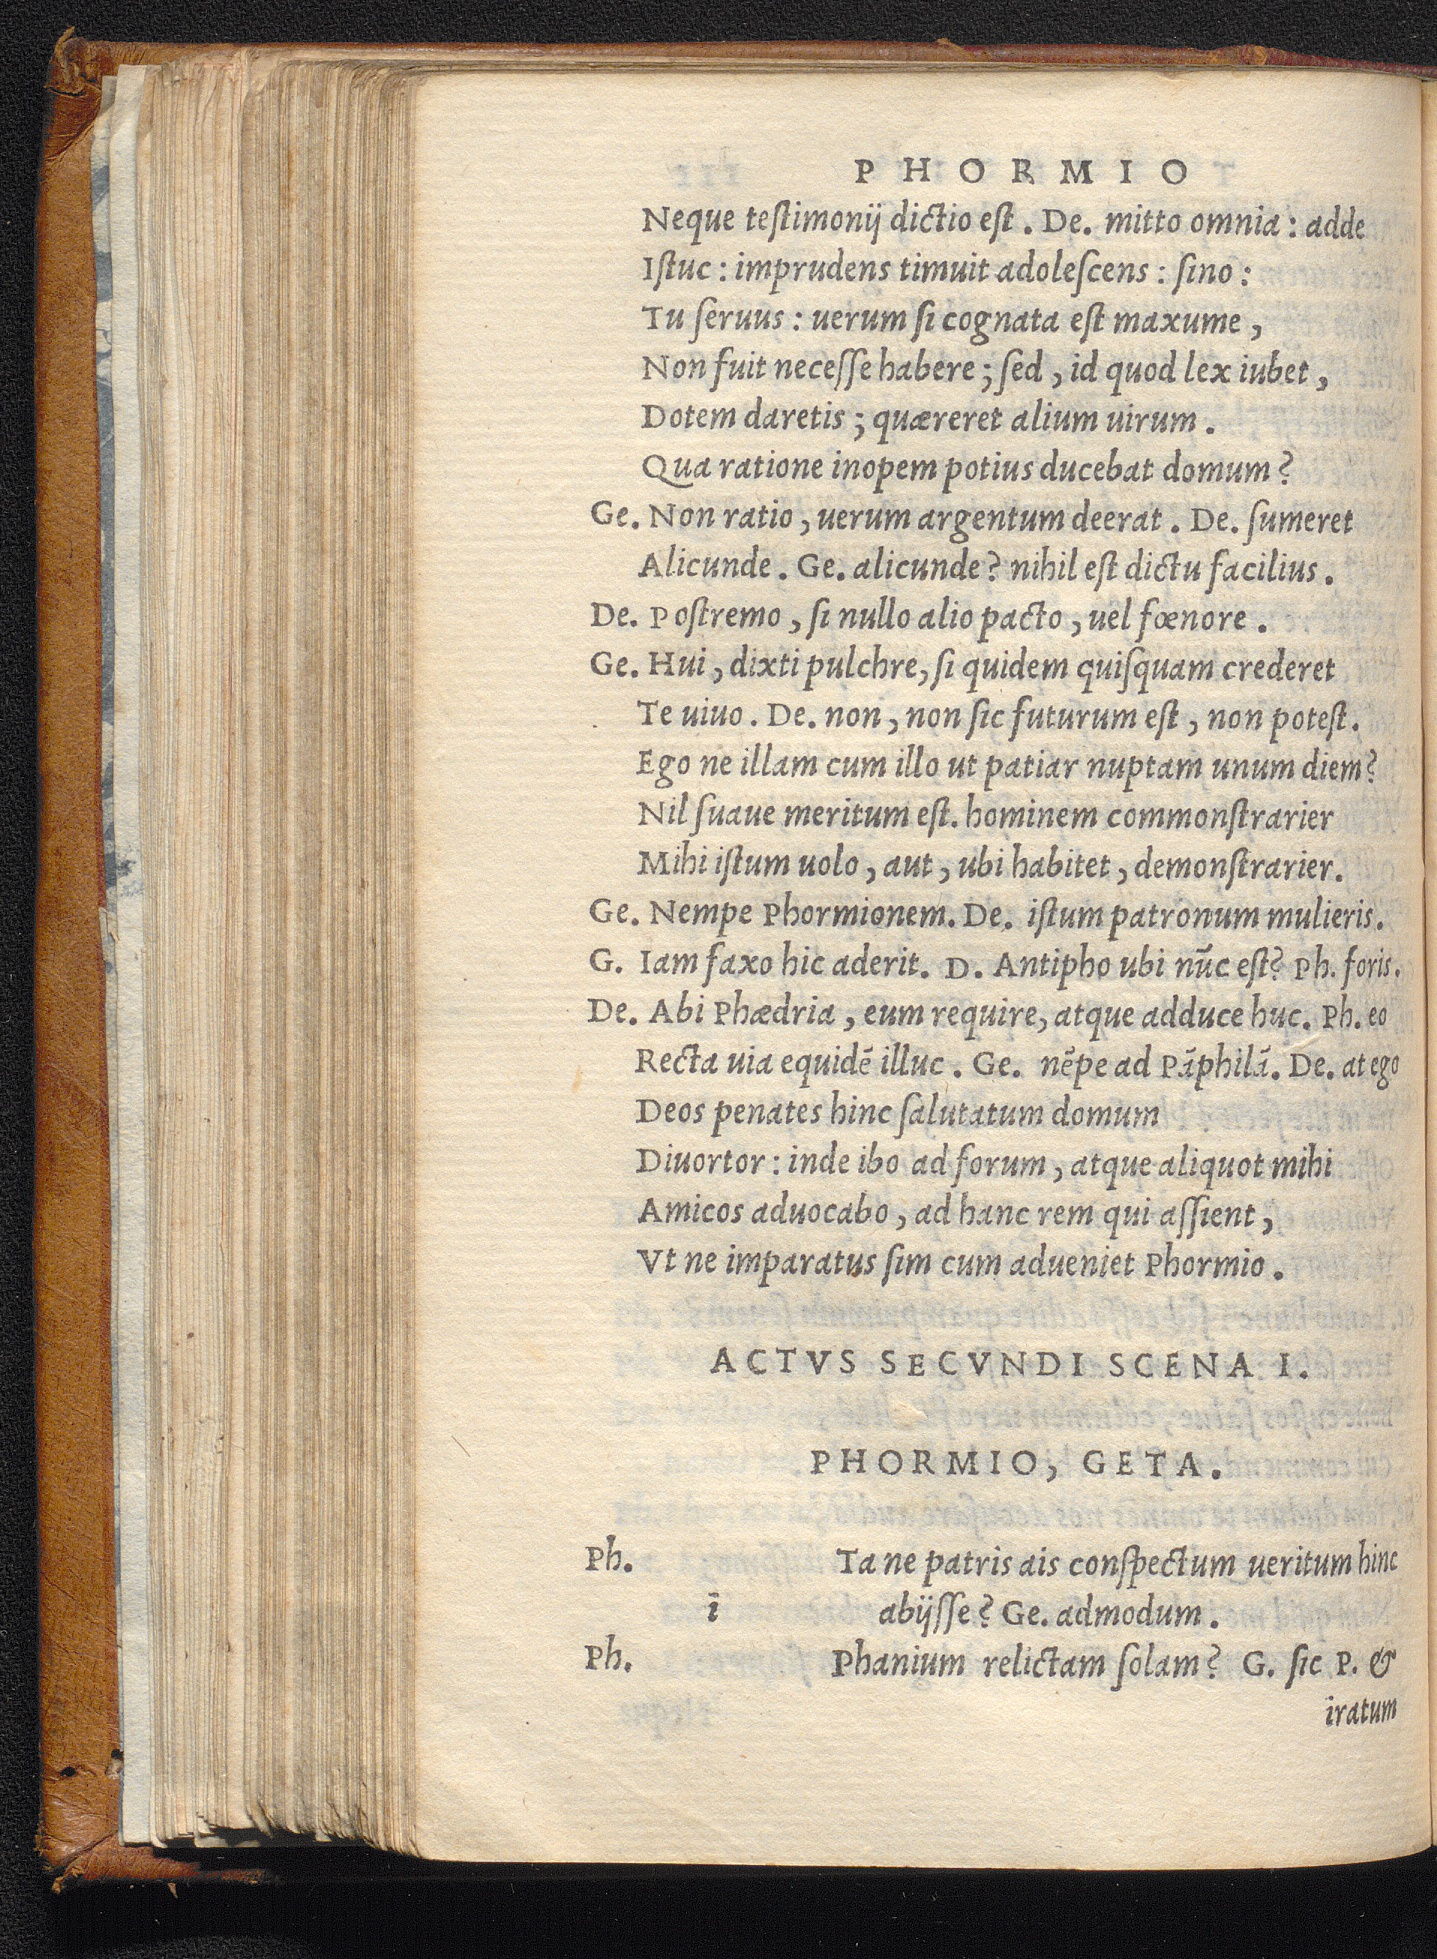 PHORMIO
Neque testimonij dictio est. De. mitto omnia: adde
Istuc: imprudens timuit adolescens: sino:
Tu seruus: uerum si cognata est maxume,
Non fuit necesse habere; sed, id quod lex iubet,
Dotem daretis; quæreret alium uirum.
Qua ratione inopem potius ducebat domum?
Ge. Non ratio, uerum argentum deerat. De. sumeret
Alicunde. Ge. alicunde? nihil est dictu facilius.
De. Postremo, si nullo alio pacto, uel fœnore.
Ge. Hui, dixti pulchre, si quidem quisquam crederet
Te uiuo. De. non, non sic futurum est, non potest.
Ego ne illam cum illo ut patiar nuptam unum diem?
Nil suaue meritum est. hominem commonstrarier
Mihi istum uolo, aut, ubi habitet, demonstrarier.
Ge. Nempe Phormionem. De. istum patronum mulieris.
G. Iam faxo hic aderit. D. Antipho ubi nūc est? Ph. foris.
De. Abi Phædria, eum require, atque adduce huc. Ph. eo
Recta uia equidē illuc. Ge. nēpe ad Pāphilā. De. at ego
Deos penates hinc salutatum domum
Diuortor: inde ibo ad forum, atque aliquot mihi
Amicos aduocabo, ad hanc rem qui assient,
Vt ne imparatus sim cum adueniet Phormio.
ACTVS SECVNDI SCENA I.
PHORMIO, GETA.
Ph. Ta ne patris ais conspectum ueritum hinc
i abijsse? Ge. admodum.
Ph. Phanium relictam solam? G. sic P. &
iratum